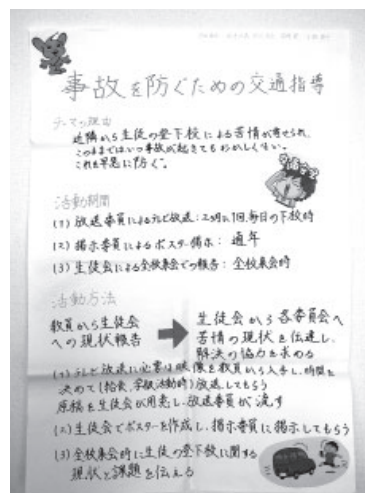 事故を防ぐための交通指導
テーマの理由
近隣から生徒の登下校による苦情が寄せられ、
このままではいつ事故が起きてもおかしくない。
これを早急に防ぐ。
活動期間
(1) 放送委員によるテレビ放送：2ヶ月に1回、毎日の下校時
(2) 掲示委員によるポスター掲示：通年
(3) 生徒会による全校集会での報告：全校集会時
活動方法
教員から生徒会
への現状報告
生徒会から各委員会へ
苦情の現状を伝達し、
解決の協力を求める
(1) テレビ放送に必要な映像を教員から入手し、時間を
決めて(給食、学級活動時)放送してもらう
原稿を生徒会が用意し、放送委員が流す
(2) 生徒会でポスターを作成し、掲示委員に掲示してもらう
(3) 全校集会時に生徒の登下校に関する
現状と課題を伝える